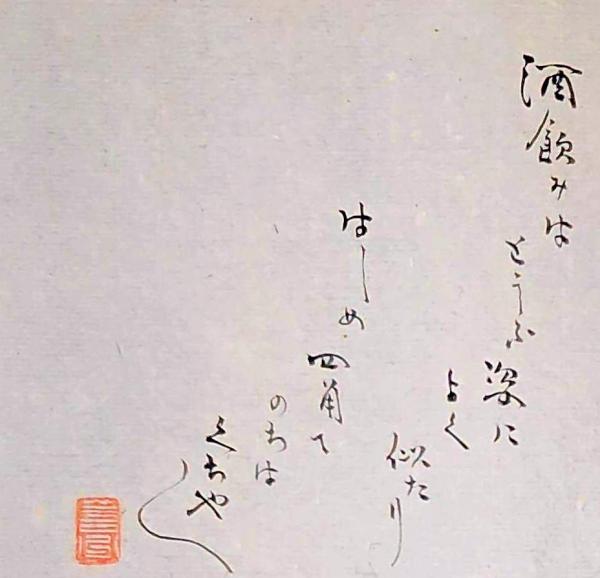 酒飲みは
とうふ姿に
よく
似たり
はじめ四角で
のちは
くちや〱